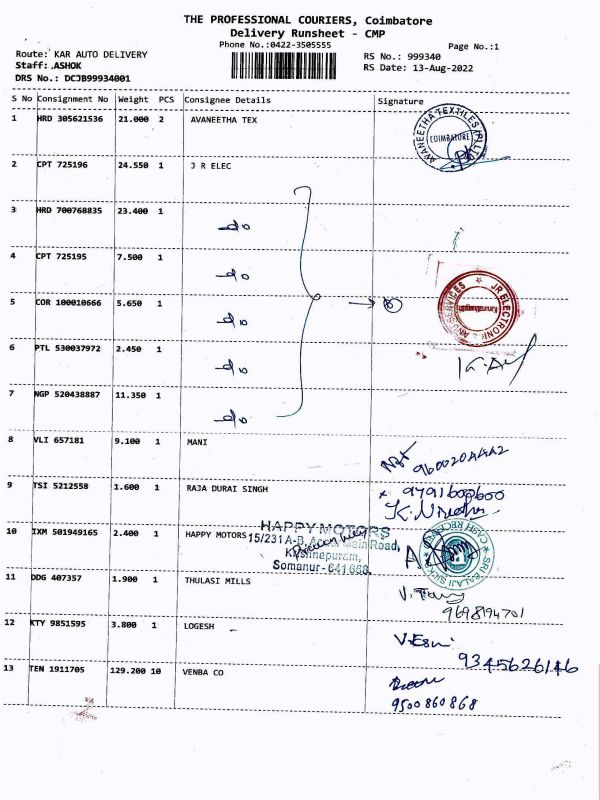 THE PROFESSIONAL COURIERS, Coimbatore
Delivery Runsheet - CMP
Phone No.:0422-3505555
Page No.:1
Route: KAR AUTO DELIVERY
RS No.: 999340
Staff: ASHOK
RS Date: 13-Aug-2022
DRS No.: DCJB99934001
S No Consignment No Weight PCS Consignee Details Signature
1 HRD 305621536 21.000 2 AVANEETHA TEX
AVANEETHA TEXTILES (P) LTD
COIMBATORE
2 CPT 725196 24.550 1 J R ELEC
3 HRD 700768835 23.400 1 do
4 CPT 725195 7.500 1 do
5 COR 100010666 5.650 1 do
JR ELECTRONICS AND SERVICES
6 PTL 530037972 2.450 1 do
7 NGP 520438887 11.350 1 do
8 VLI 657181 9.100 1 MANI
9 TSI 5212558 1.600 1 RAJA DURAI SINGH
10 IXM 501949165 2.400 1 HAPPY MOTORS
HAPPY MOTORS
Somanur - 641 668.
SRI BALAJI SILK
CASH RECEIVED
11 DDG 407357 1.900 1 THULASI MILLS
9698194701
12 KTY 9851595 3.800 1 LOGESH
9345626146
13 TEN 1911705 129.200 10 VENBA CO
9500860868